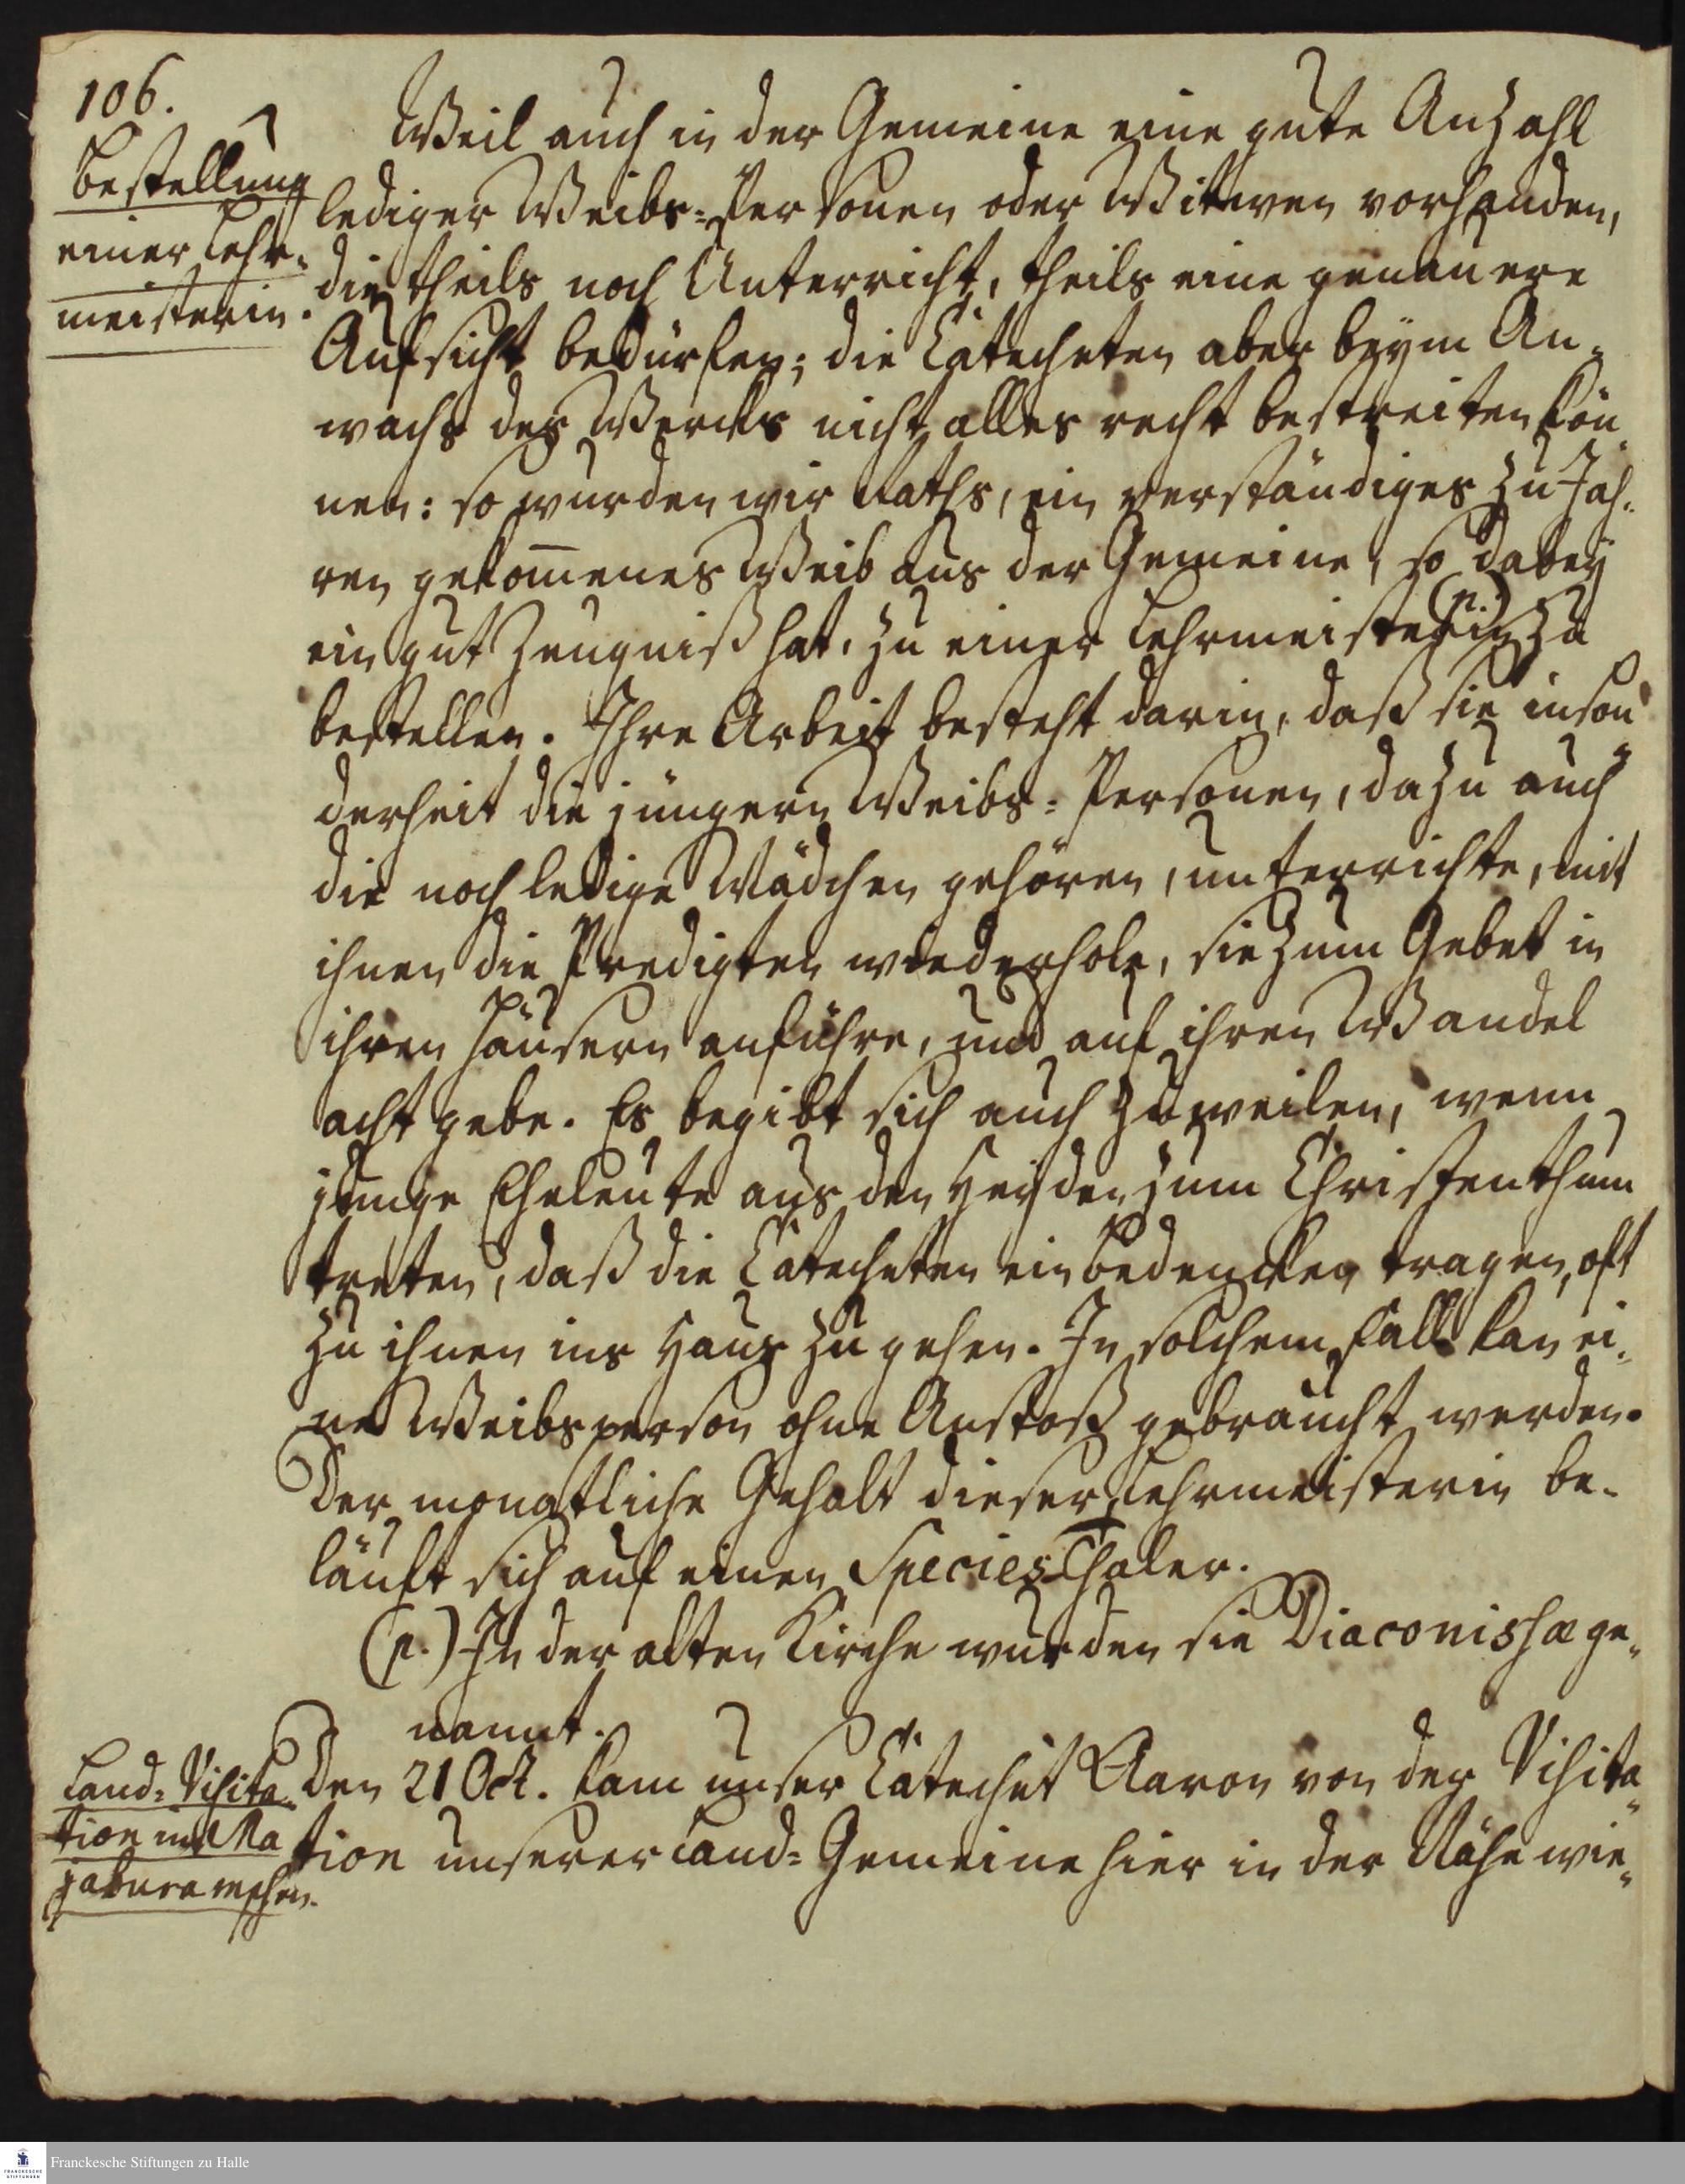 106.
Bestellung
einer Lehr-
meisterin.
Weil auch in der Gemeine eine gute Anzahl
lediger Weibs-Personen oder Witwen vorhanden,
die theils noch Unterricht, theils eine genauere
Aufsicht bedürfen; die Catecheten aber beym An-
wachs des Wercks nicht alles recht bestreiten kön-
nen: so wurden wir Raths, ein verständiges zu Jah-
ren gekom̅enes Weib aus der Gemeine, so dabey
ein gut Zeugniß hat, zu einer Lehrmeisterin (p.) zu
bestellen. Ihre Arbeit besteht darin, daß sie inson-
derheit die jüngern Weibs-Personen, dazu auch
die noch ledige Mädchen gehören, unterrichte, mit
ihnen die Predigten wiederhole, sie zum Gebet in
ihren Häusern anführe, und auf ihren Wandel
acht gebe. Es begibt sich auch zuweilen, wenn
junge Eheleute aus den Heyden zum Christenthum
treten, daß die Catecheten ein Bedencken tragen, oft
zu ihnen ins Haus zu gehen. In solchem Fall kan ei-
ne Weibsperson ohne Anstoß gebraucht werden.
Der monatliche Gehalt dieser Lehrmeisterin be-
läuft sich auf einen Species Thaler.
(p.) In der alten Kirche wurden sie Diaconissæ ge-
nannt.
Land-Visita-
tion im Ma
jaburamschen.
Den 21 Oct. kam unser Catechet Aaron von der Visita-
tion unserer Land-Gemeine hier in der Nähe wie-
Franckesche Stiftungen zu Halle
FRANCKESCHE
STIFTUNGEN